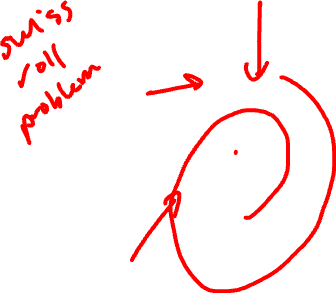 swiss
roll
problem